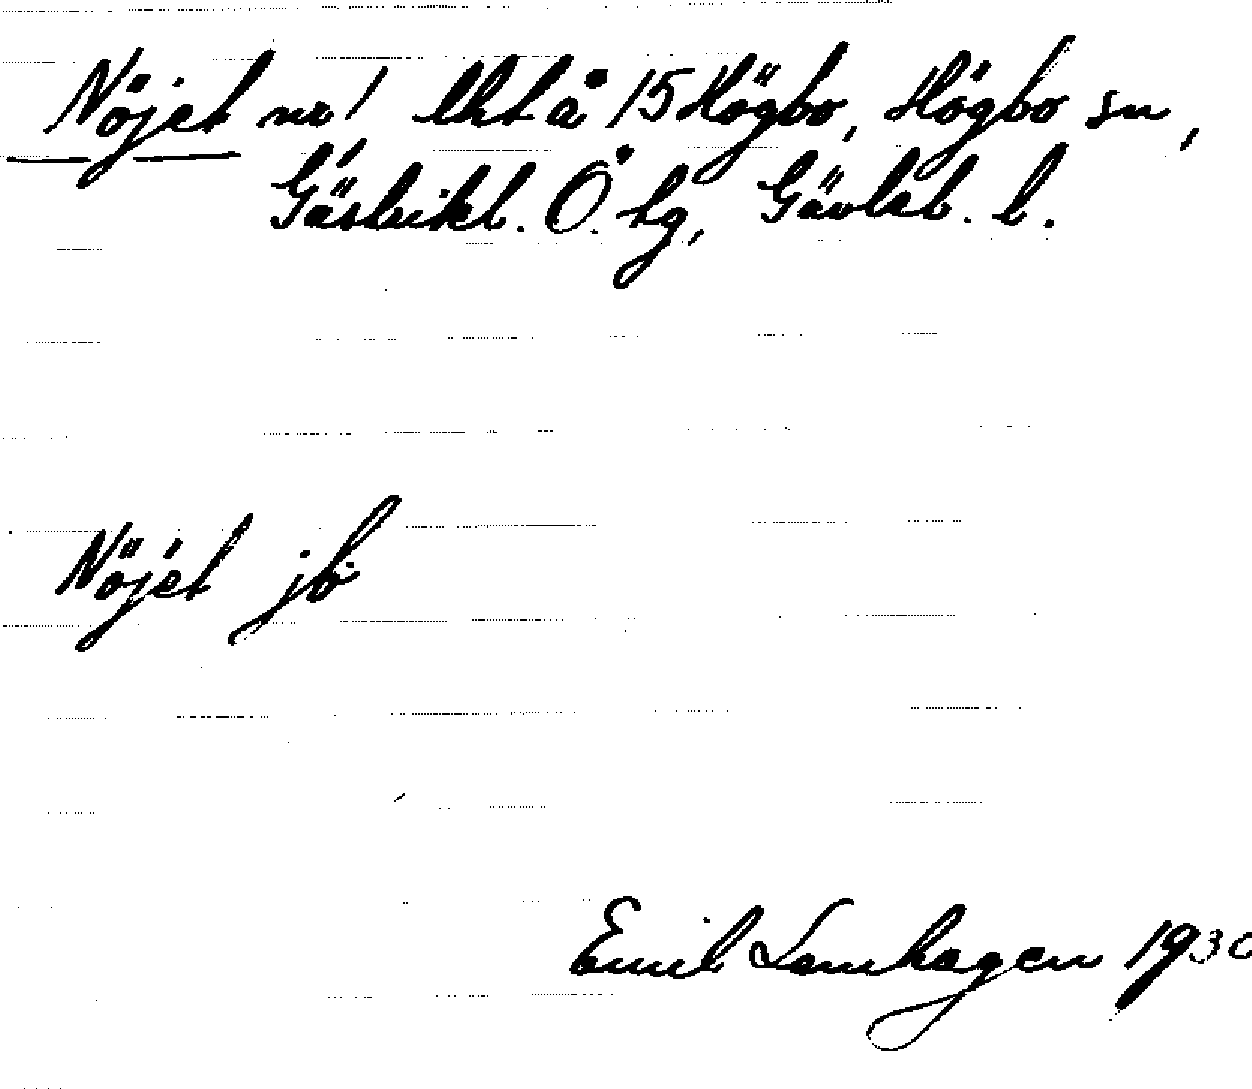 Nöjet nr 1 lht å 15 Högbo, Högbo sn,
Gästrikl. Ö. hg, Gävleb. l.
Nöjet
Emil Lamhagen 1930